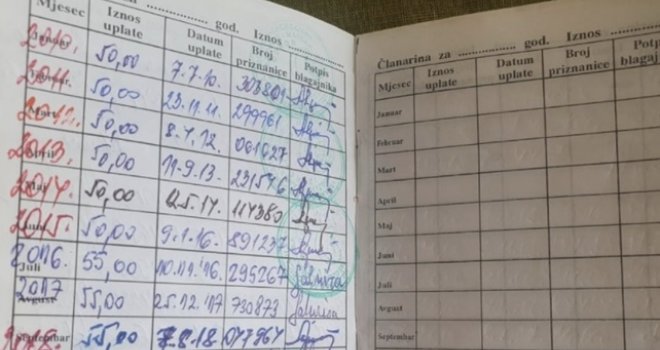 god. Iznos
Mjesec Iznos uplate Datum uplate Broj priznanice Potpis blagajnika
2010. 50,00 7.7.10. 303801
2011. 50,00 23.11.11. 299961
2012. 50,00 8.4.12. 061027
April 2013. 50,00 11.9.13. 231546
Maj 2014. 50,00 25.14. 114380
2015. 50,00 9.1.16. 891237
Juli 2016. 55,00 10.11.'16. 295267
Avgust 2017 55,00 25.12.'17 730873
Septembar 2018. 55,00 7.8.18 077967
Članarina za god. Iznos
Mjesec Iznos uplate Datum uplate Broj priznanice Potpis blagajnika
Januar
Februar
Mart
April
Maj
Juni
Juli
Avgust
Septembar